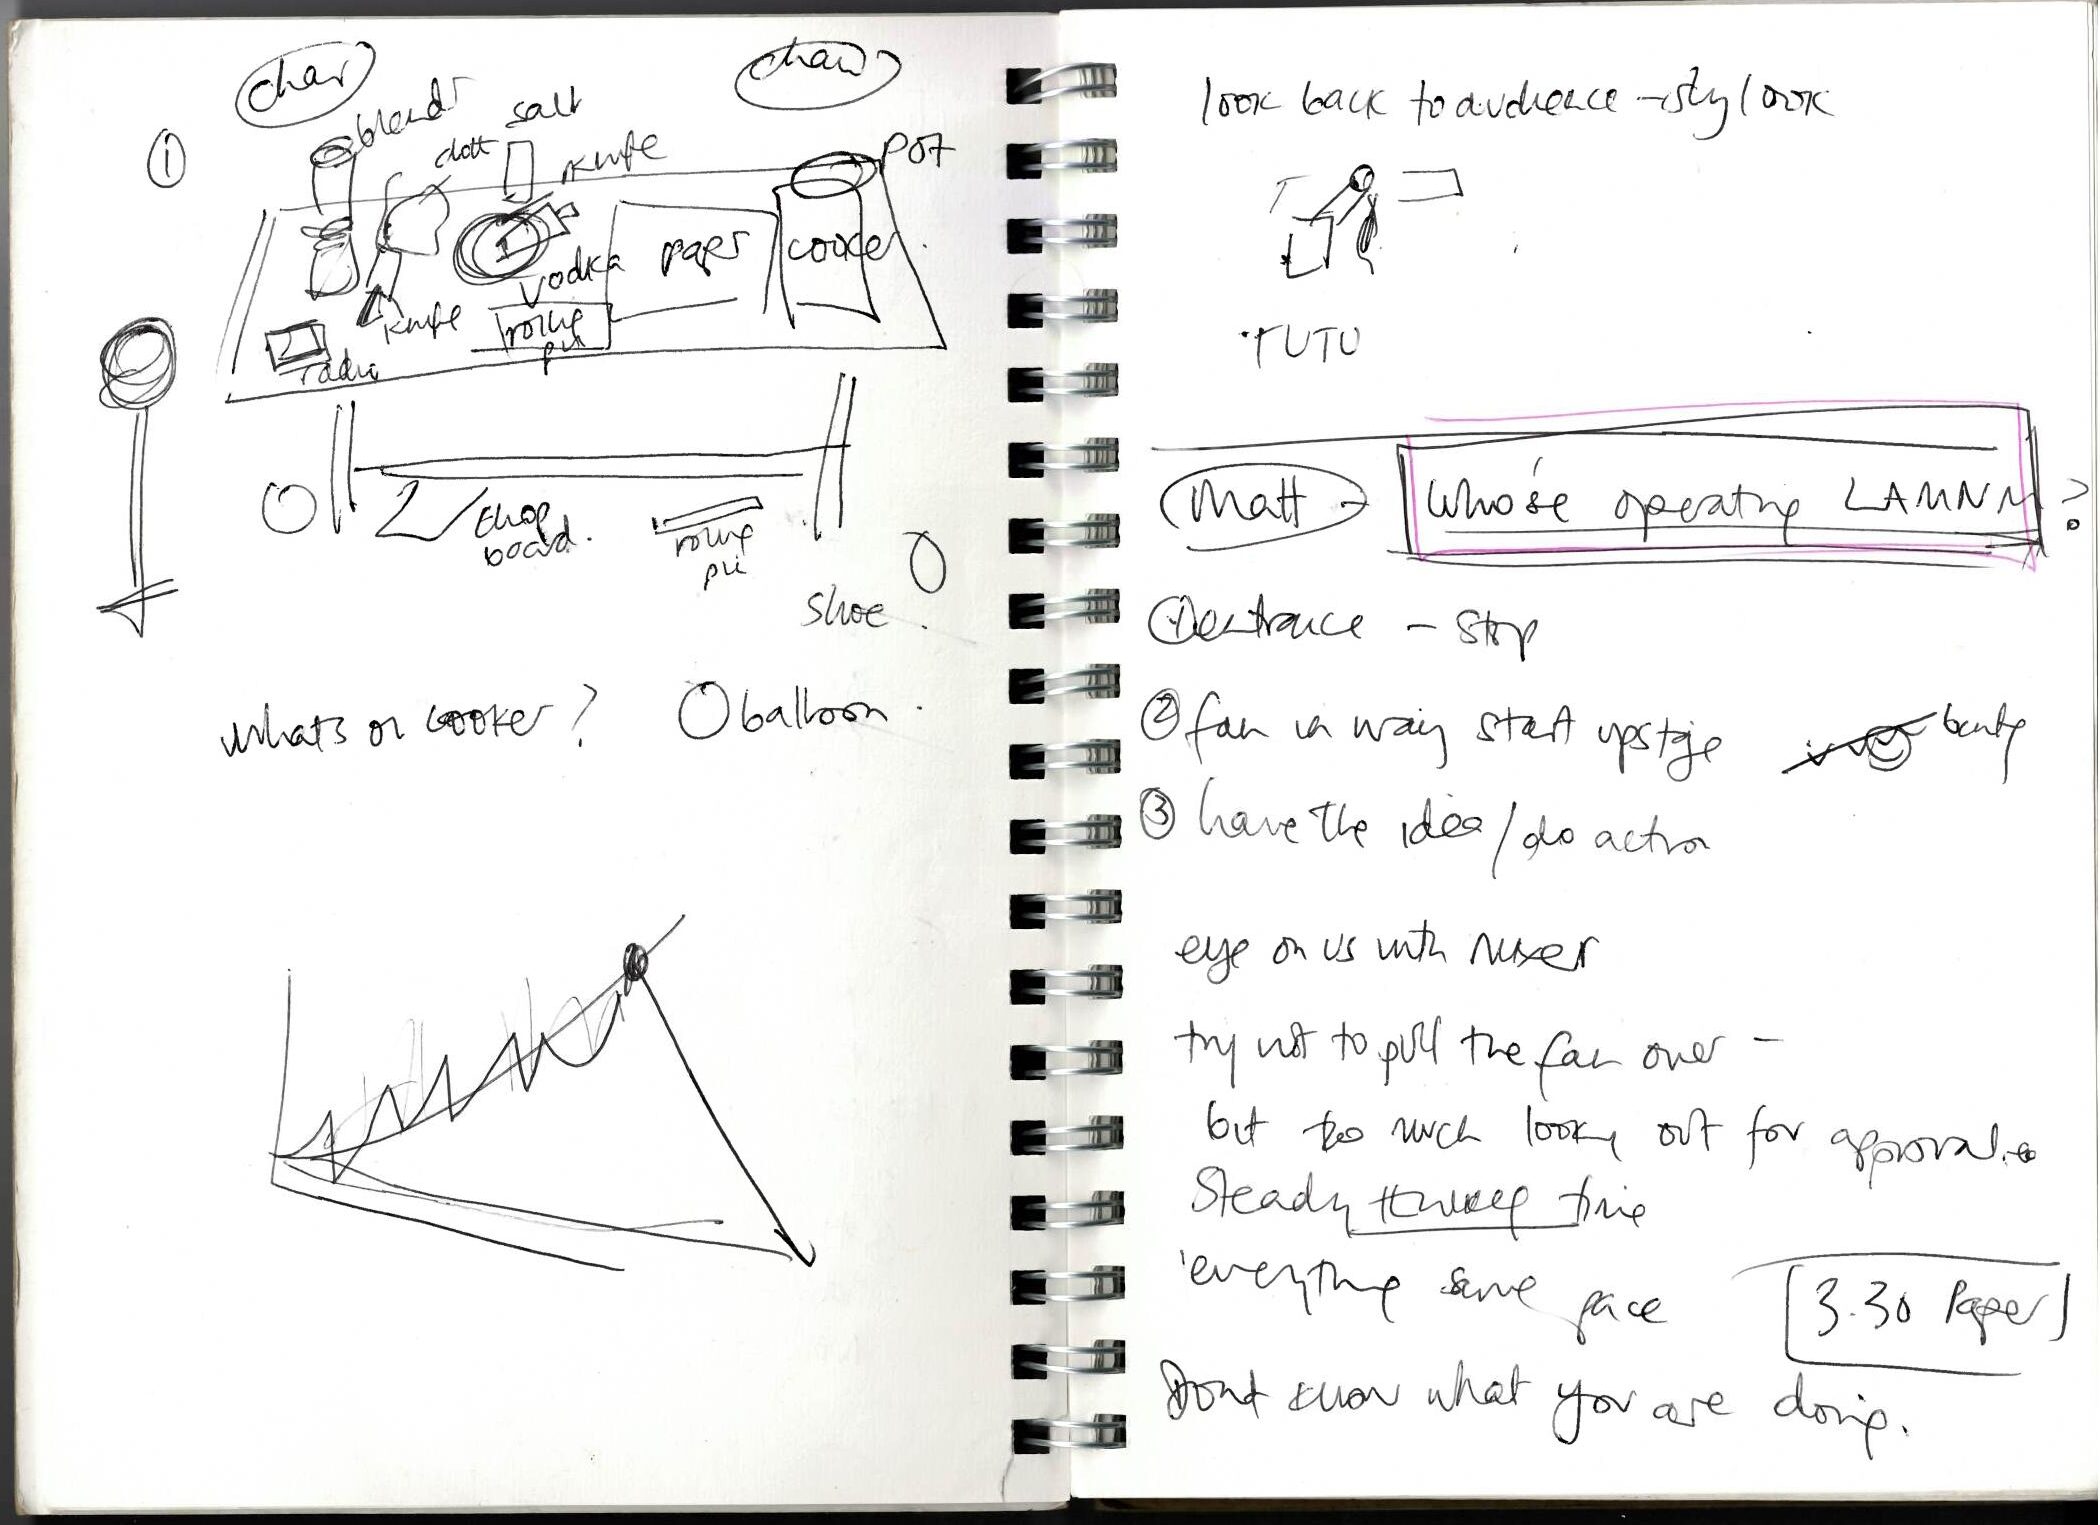 chair
chair
①
blender
salt
cloth
knife
POT
vodka
paper
cooker.
knife
rolling
pin
radio
chop
board.
rolling
pin
shoe.
whats on cooker?
balloon.
look back to audience - shy look
TUTU
Matt -
Who's operating ?
① entrance - Stop
② fan in way start upstge
③ have the idea/do action
eye on us with mixer
try not to pull the fan over -
but too much looking out for approval.
Steady through time
everything same pace
3.30 Paper
Dont know what you are doing.